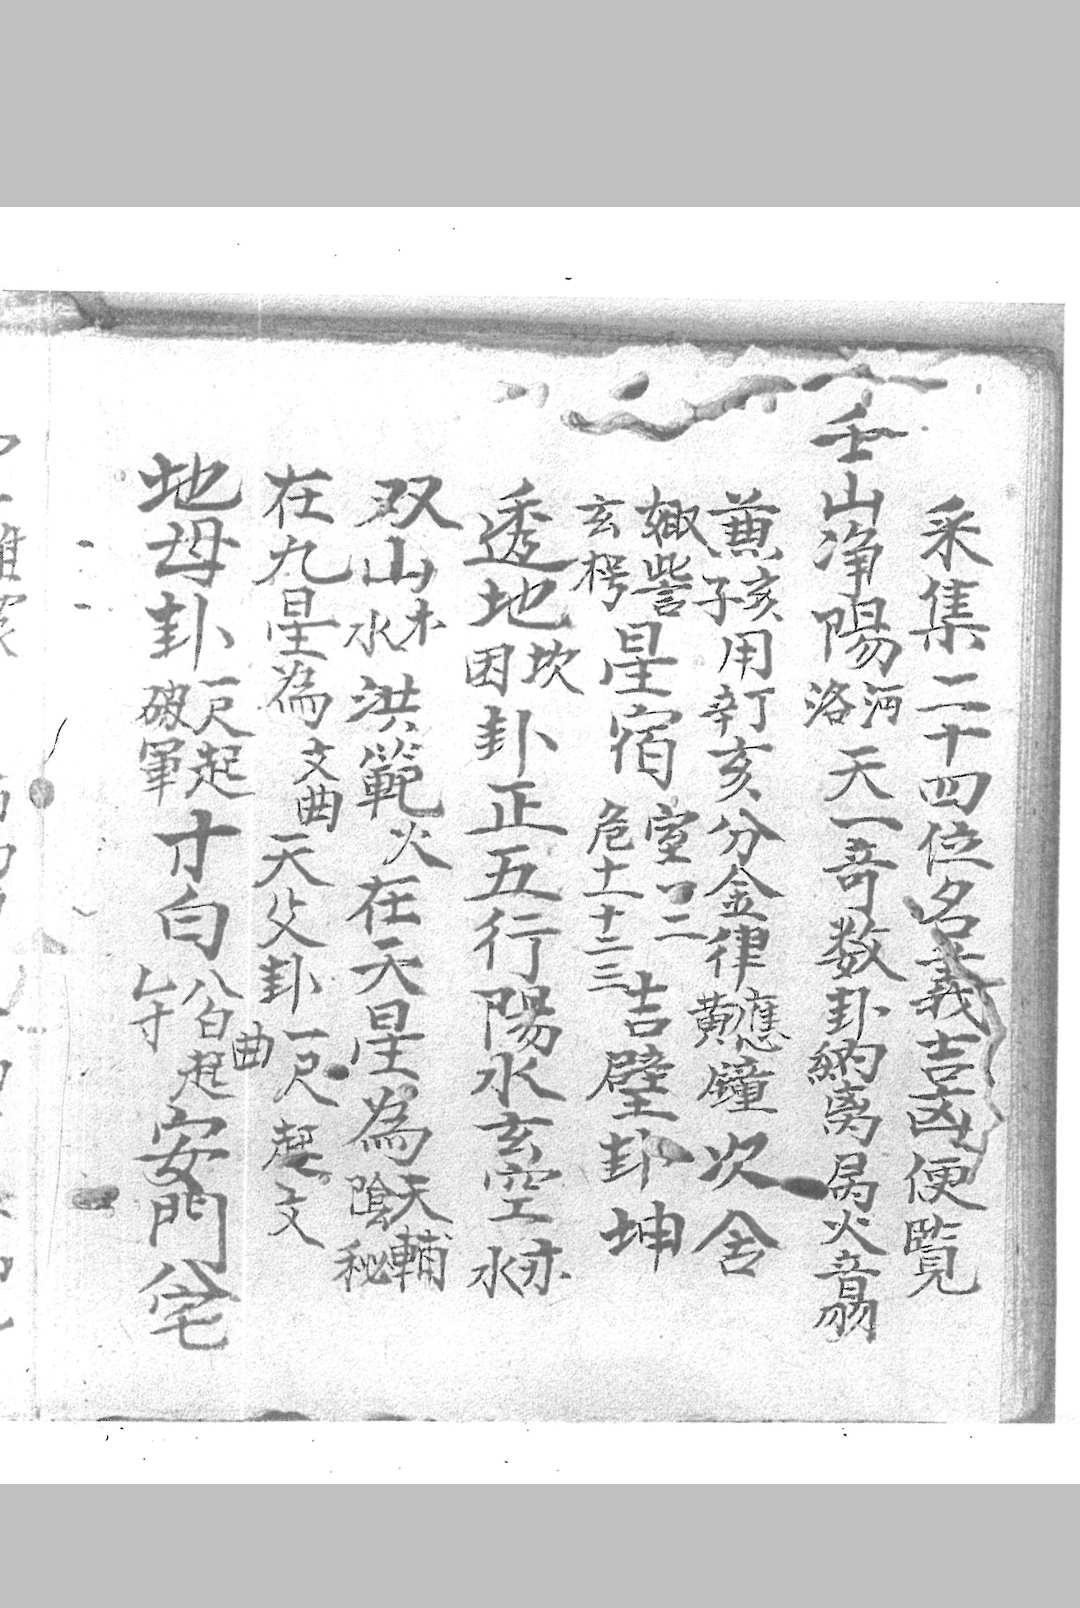 采集二十四位名義吉凶便覧
壬山净陽河洛天一竒数卦納离局火音昜
兼亥子用丁辛亥分金律應黄鐘次舍
娵訾玄枵星宿室一二危十一十二十三吉壁卦坤
透地坎困卦正五行陽水玄空亦水
双山木水洪範火在天星為天輔陰秘
在九星為文曲天父卦一尺起文曲
地母卦一尺起破軍寸白八白起六寸安門从宅